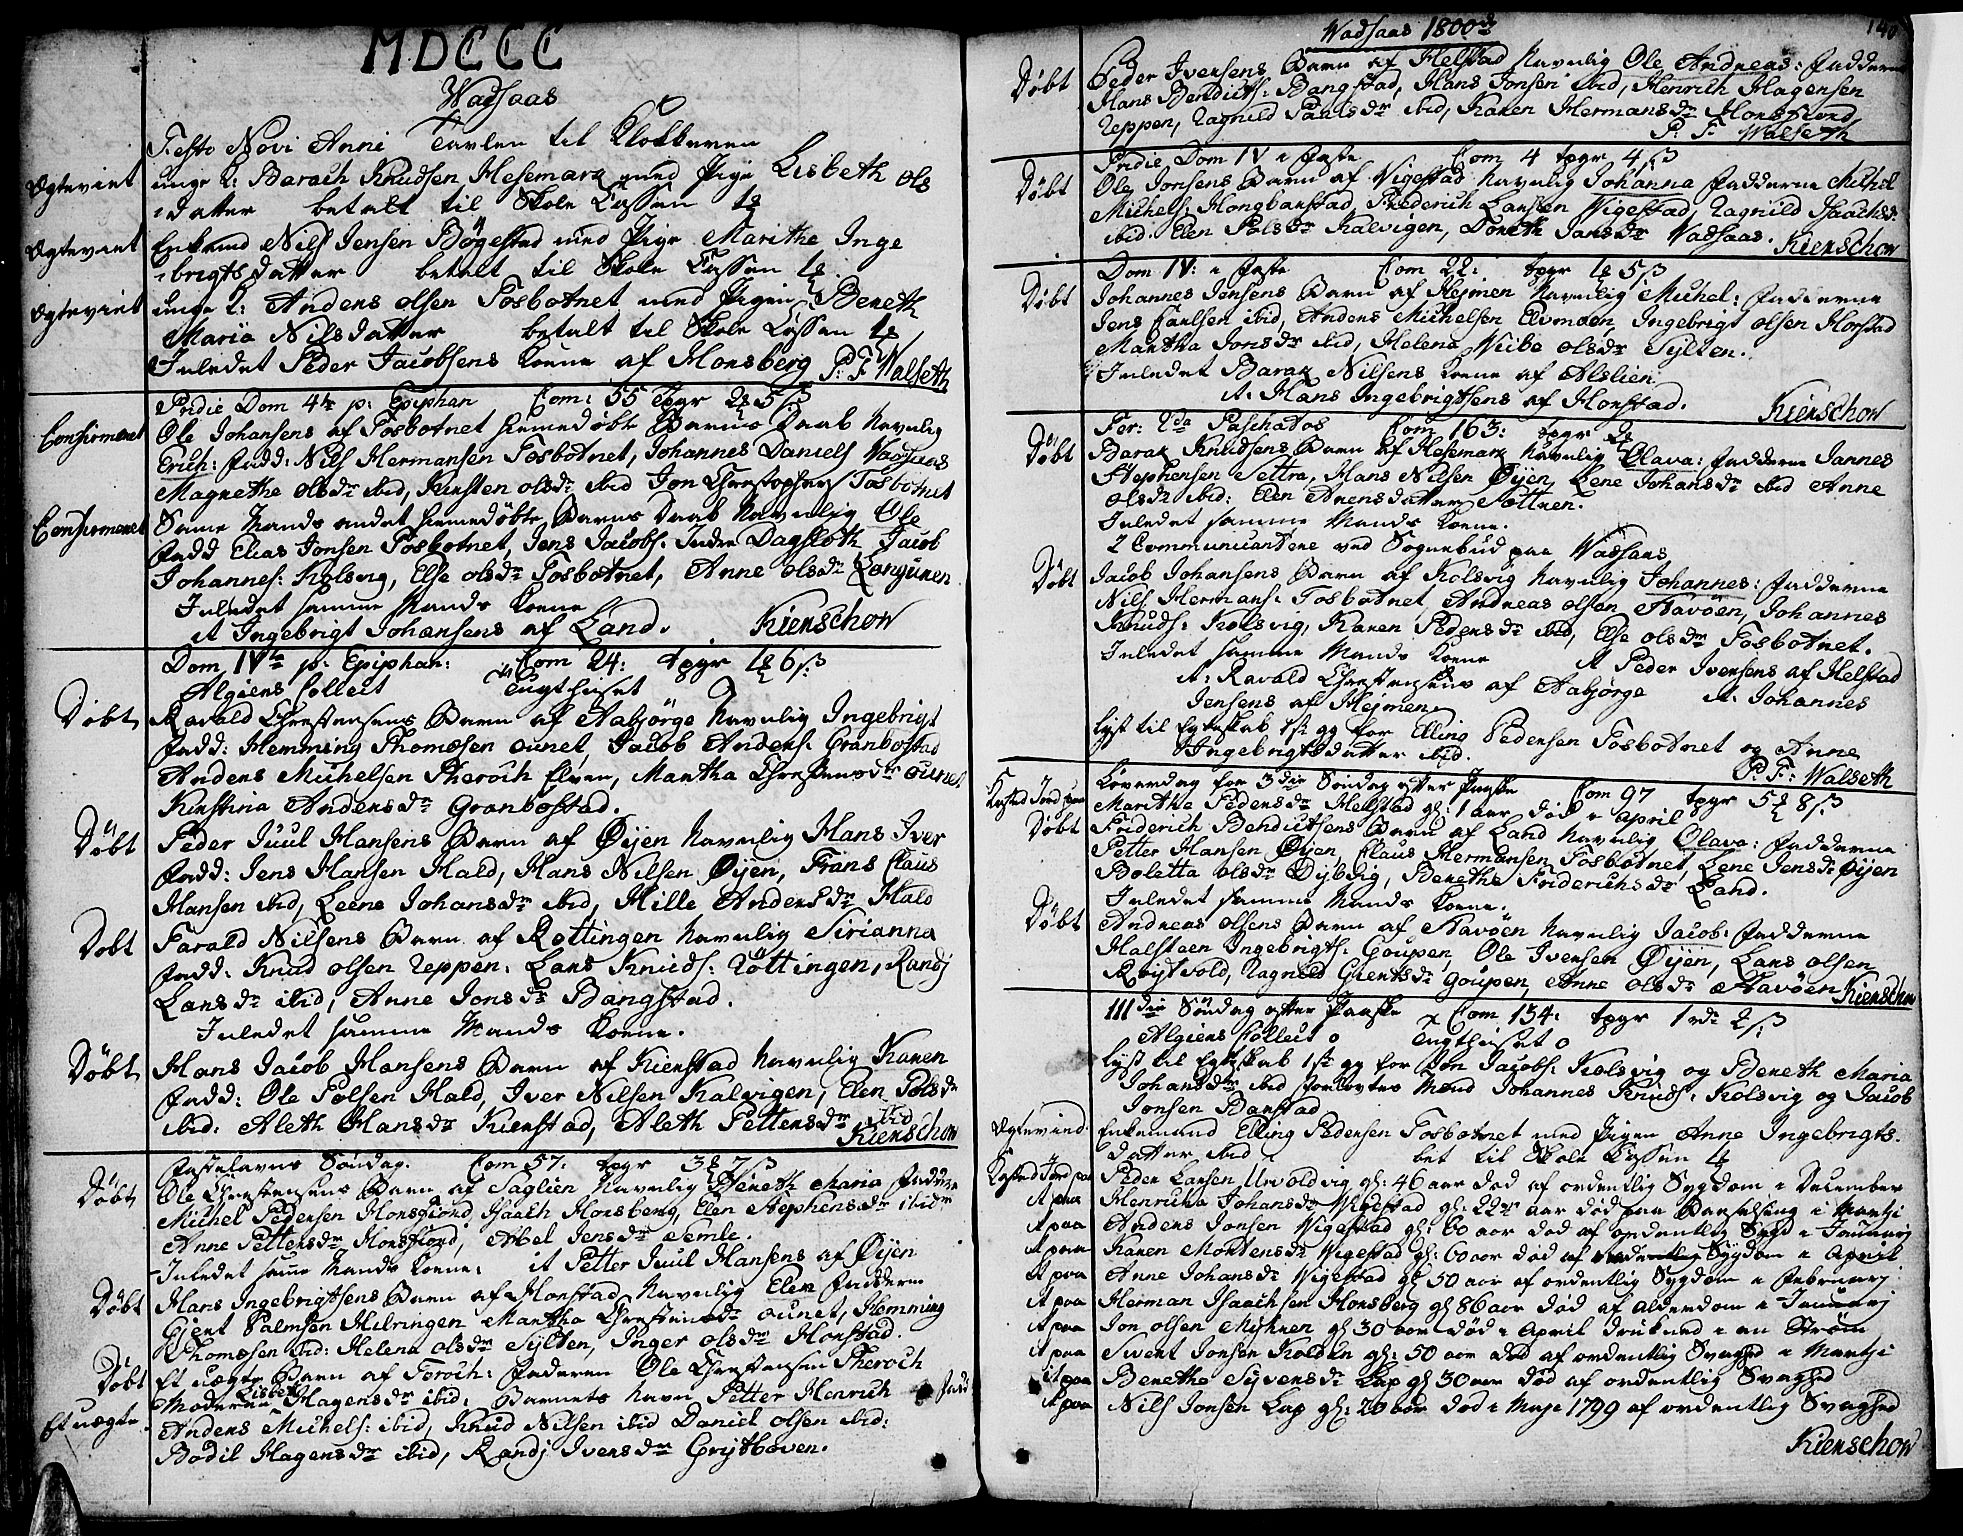 MDCCC
Wadsaas
Festo Novi Anni Tavlen til Klokkeren
Ægteviet unge K: Barach Knudsen Hesemarg med Pige Lisbeth Ols
datter betalt til Skole Cassen
Ægteviet Enkemd Nils Jensen Bøgestad med Pige Marithe Inge
brigtsdatter betalt til Skole Cassen
Ægteviet unge K: Anders Olsen Tosbotnet med Pigen Bereth
Maria Nilsdatter betalt til Skole Cassen
Inledet Peder Jacobsens Kone af Honsberg P: F Walseth
Pridie Dom 4te p: Epiphan Com: 55 Tpgr 5 ß
Confirmeret Ole Johansens af Tosbotnet hiemedøbte Barns Daab Navnlig
Erich: Fadd: Nils Hermansen Tosbotnet, Johannes Daniels Wadsaas
Magnethe olsdr ibid, Kirsten olsdr ibid Jon Christophers Tosbotnet
Confirmeret Same Mands andet hiemedøbte Barns Daab Navnlig Ole
Fadd Elias Jonsen Tosbotnet, Jens Jacobs: Indre Dagsloth Jacob
Johannes: Kolsvig, Else olsdr Tosbotnet, Anne olsdr
Inledet samme Mands Kone
It Ingebrigt Johansens af Land. Kierschow
Dom IVta p: Epiphan: Com 24: tpgr 6 ß
Algiers Collect Tugthuset
Døbt Ravald Christensens Barn af Aabjørge Navnlig Ingebrigt
Fadd: Hemming Thomesen ounet Jacob Anders: Granbostad
Anders Michelsen Theroch Elven, Martha Christensdr ounet
Kirstina Andersdr Granbostad.
Døbt Peder Juul Hansens Barn af Øyen Navnlig Hans Iver
Fadd: Jens Hansen Hald, Hans Nilsen Øyen, Frans Claus
Hansen ibid, Leene Johansdr ibid, Hille Andersdr Hald
Døbt Farald Nilsens Barn af Røttingen Navnlig Sirianna
Fadd: Knud olsen Reppen: Lars Knuds: Røttingen, Randj
Larsdr ibid, Anne Jonsdr Bangstad.
Inledet samme Mands Kone.
Døbt Hans Jacob Hansens Barn af Kierstad Navnlig Karen
Fadd: Ole Polsen Hald, Iver Nilsen Kalvigen, Elen Polsdr
ibid: Aleth Hansdr Kierstad, Aleth Pettersdr ibid
Kierschow
Fastelavns Søndag. Com 57: tpgr 7 ß
Døbt Ole Christensens Barn af Saglien Navnlig Bereth Maria Fadderne
Michel Pedersen Honsfiord, Isaach Honsberg, Elen Stephensdr ibidm
Anne Pettersdr Honsfiord, Abel Jensdr Semle.
Inledet same Mands Kone: it Petter Juul Hansens af Øyen
Døbt Hans Ingebrigtsens Barn af Horstad Navnlig Elen Fadderne
Gjert Palmsen Hilringen Martha Christensdr ounet, Hemming
Thomesen ibid: Helena olsdr Sylten, Inger olsdr Horstad.
Døbt Et uægte Barn af Toroch: Faderen Ole Christensen Theroch
Moderen Lisbet Hagensdr ibid: Barnets Navn Petter Henrich Fadd:
Et uægte Anders Michels: ibid, Knud Nilsen ibid Daniel olsen ibid:
Bodil Hagensdr ibid, Randj Iversdr Grythoven.
Wadsaas 1800de
140
Døbt Peder Iversens Barn af Helstad Navnlig Ole Andreas: Fadderne
Hans Bendicts: Bangstad, Hans Jonsen ibid, Henrich Hagensen
Reppen, Ragnild Paulsdr ibid, Karen Hermansdr Honsfiord,
P: F Walseth
Pridie Dom IV i Faste Com 4 tpgr 4 ß
Døbt Ole Jonsens Barn af Vigestad Navnlig Johanna Fadderne Michel
Michels: Hongbarstad, Frederich Larsen Vigestad, Ragnild Isachsdr
ibid. Elen Polsdr Kalvigen, Dorethe Jansdr Wadsaas. Kierschow
Dom IV: i Faste Com 22: tpgr 5 ß
Døbt Johannes Jensens Barn af Hejmen Navnlig Michel: Fadderne
Jens Paulsen ibid, Anders Michelsen Elvmoen, Ingebrigt olsen Horstad
Martha Jonsdr ibid, Helena Wibe olsdr Sylten.
Inledet Barak Nilsens Kone af Alslien.
It. Hans Ingebrigtsens af Horstad. Kierschow
Fer: 2da Paschatos Com 163: tpgr
Døbt Barak Knudsens Barn af Hesemarg Navnlig Olava: Fadderne Jannes
Stephensen Settra, Hans Nilsen Øyen, Lene Johansdr ibid Anne
olsdr ibid: Elen Arensdatter Sottren.
Inledet samme Mands Kone.
2 Communicantere ved Sognebud paa Wadsaas
Døbt Jacob Johansens Barn af Kolsvig Navnlig Johannes: Fadderne
Nils Hermans: Tosbotnet Andreas olsen Havøen, Johannes
Knuds: Kolsvig, Karen Pedersdr ibid, Else olsdr Tosbotnet.
Inledet samme Mands Kone It Peder Iversens af Helstad
It: Ravald Christensens af Aabjørge It: Johannes
Jensens af Hejmen
Lyst til Egteskab 1ste gg for Elling Pedersen Tosbotnet og Anne
Ingebrigtsdatter ibid. P: F: Walseth
Løverdag for 3die Søndag efter Paaske Com 97 tpgr 8 ß
Kasted Jord paa Marithe Pedersdr Helstad gl: 1 aar død i April
Døbt Friderich Bendictsens Barn af Land Navnlig Olava: Fadderne
Petter Hansen Øyen Claus Hermansen Tosbotnet, Lene Jensdr Øyen
Boletta olsdr Dybvig, Berethe Friderichsdr Land.
Inledet samme Mands Kone.
Døbt Andreas olsens Barn af Havöen Navnlig Jacob: Fadderne
Halsteen Ingebrigts: Goupen, Ole Iversen Øyen, Lars olsen
Røytvold, Ragnild Giertsdr Goupen, Anne olsdr Havöen Kierschow
IIIdie Søndag efter Paaske Com 134: tpgr 1 rd 2 ß
Algiers Collect o Tugthuset o
Lyst til Egteskab 1ste gg for Jon Jacobs: Kolsvig og Bereth Maria
Johansdr ibid forlovere Mend Johannes Knuds: Kolsvig og Jacob
Jonsen Barstad
Ægtevied Enkemand Elling Pedersen Tosbotnet med Pigen Anne Ingebrigts.
datter ibid: bet til Skole Cassen
Kasted Jord paa Peder Larsen Urvoldvig gl: 46 aar død af ordentlig Sygdom i December
It paa Henricha Johansdr Wigestad gl: 22 aar død paa Barselseng i Martji
It paa Anders Jonsen Wigestad gl: 60 aar død af ordentlig Sygd i Januarj
It paa Karen Mortensdr Wigestad gl: 60 aar død af ordentlig Sygdom i April
It paa Anne Johansdr Wigestad gl 50 aar af ordentlig Sygdom i Februarj
It paa Herman Isaachsen Honsberg gl 86 aar død af Alderdom i Januarj
It paa Jon olsen Myhren gl 30 aar død i April druknet i en Strøm
It paa Sivert Jonsen Kolden gl: 50 aar død af ordentlig Svaghed i Martji
It paa Berethe Syversdr Lap gl 30 aar død af ordentlig Svaghed
It paa Nils Jonsen Lap gl: 20 aar død i Maji 1799 af ordentlig Svaghed
Kierschow